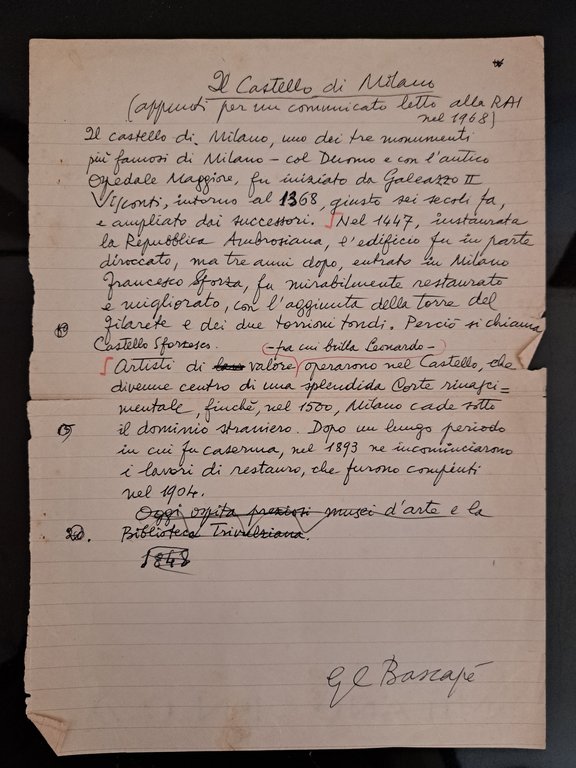 Il Castello di Milano
(appunti per un comunicato letto alla RAI
nel 1968)
Il castello di Milano, uno dei tre monumenti
più famosi di Milano – col Duomo e con l'antico
Ospedale Maggiore, fu iniziato da Galeazzo II
Visconti, intorno al 1368, giusto sei secoli fa,
e ampliato dai successori. Nel 1447, instaurata
la Repubblica Ambrosiana, l'edificio fu in parte
diroccato, ma tre anni dopo, entrato in Milano
Francesco Sforza, fu mirabilmente restaurato
e migliorato, con l'aggiunta della torre del
Filarete e dei due torrioni tondi. Perciò si chiama
Castello Sforzesco.
(– fra cui brilla Leonardo –)
Artisti di valore operarono nel Castello, che
divenne centro di una splendida Corte rinasci=
mentale, finchè, nel 1500, Milano cade sotto
il dominio straniero. Dopo un lungo periodo
in cui fu caserma, nel 1893 ne incominciarono
i lavori di restauro, che furono compiuti
nel 1904.
Oggi ospita preziosi musei d'arte e la
20. Biblioteca Trivulziana.
1848
G C Bascapé